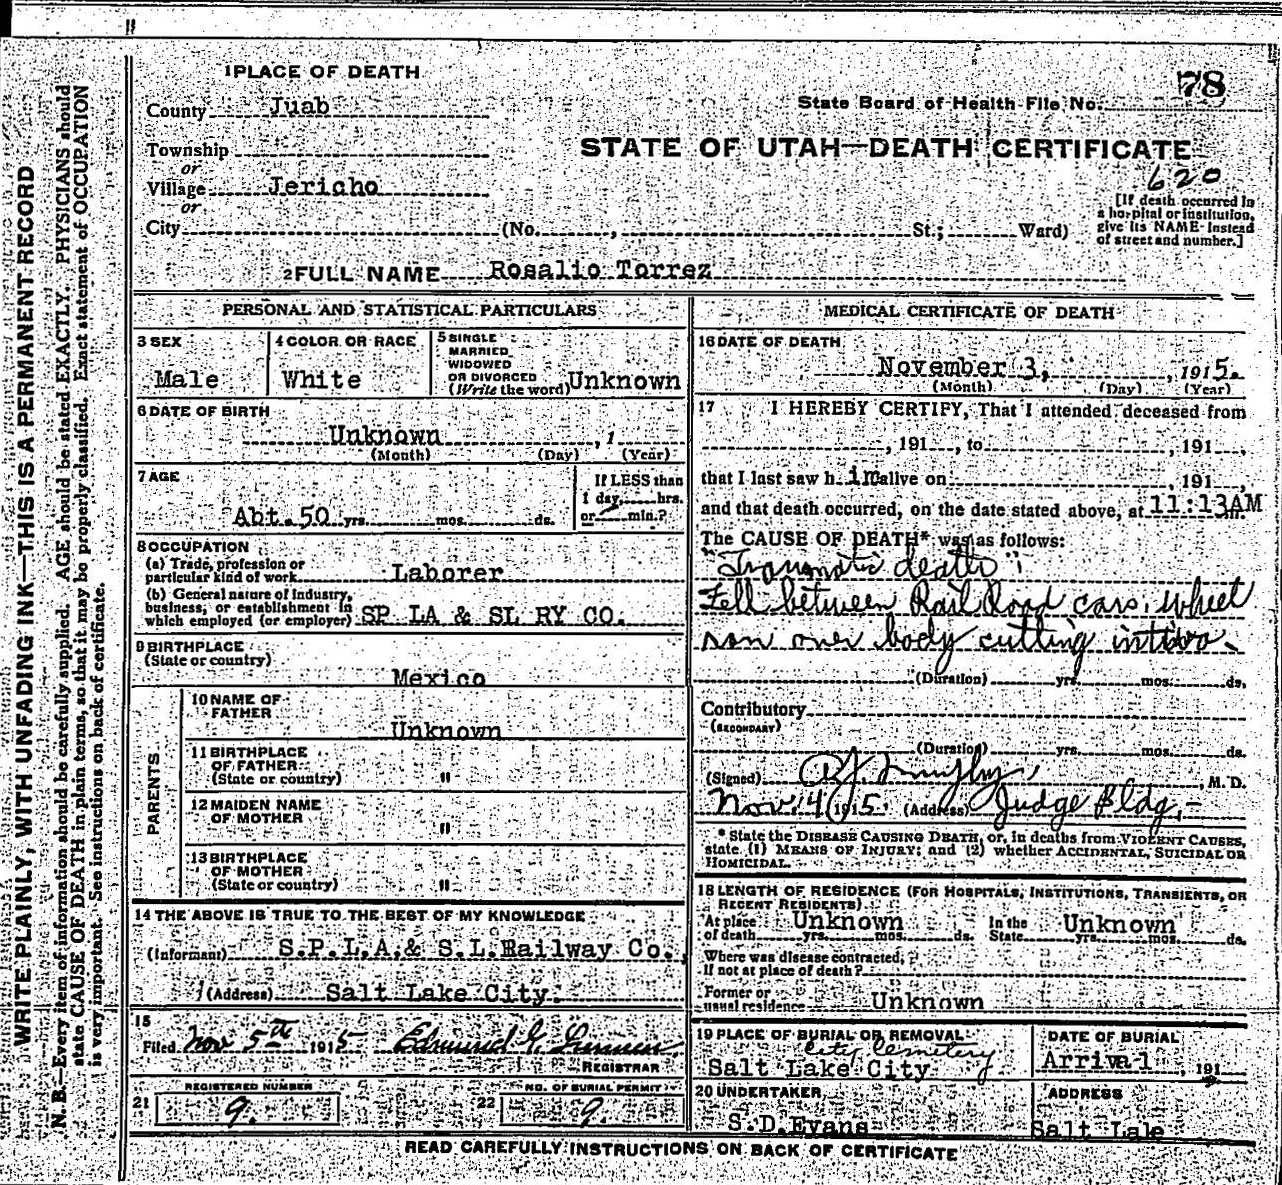 1 PLACE OF DEATH
78
County Juab
State Board of Health File No.
Township
STATE OF UTAH—DEATH CERTIFICATE
or
620
Village Jericho
or
[If death occurred in
a hospital or institution,
give its NAME instead
of street and number.]
City (No. , St.; Ward)
2 FULL NAME Rosalio Torrez
PERSONAL AND STATISTICAL PARTICULARS
3 SEX
Male
4 COLOR OR RACE
White
5 SINGLE
MARRIED
WIDOWED
OR DIVORCED
(Write the word) Unknown
6 DATE OF BIRTH
Unknown , 1
(Month) (Day) (Year)
7 AGE
Abt. 50 yrs. mos. ds.
If LESS than
1 day, hrs.
or min.?
8 OCCUPATION
(a) Trade, profession or
particular kind of work Laborer
(b) General nature of Industry,
business, or establishment in
which employed (or employer) SP LA & SL RY CO.
9 BIRTHPLACE
(State or country)
Mexico
PARENTS
10 NAME OF
FATHER
Unknown
11 BIRTHPLACE
OF FATHER
(State or country) "
12 MAIDEN NAME
OF MOTHER
"
13 BIRTHPLACE
OF MOTHER
(State or country) "
14 THE ABOVE IS TRUE TO THE BEST OF MY KNOWLEDGE
(Informant) S.P.L.A.& S.L.Railway Co.
(Address) Salt Lake City.
15
Filed Nov 5th 1915 Edmund G.
REGISTRAR
REGISTERED NUMBER
21 9.
NO. OF BURIAL PERMIT
22 9.
MEDICAL CERTIFICATE OF DEATH
16 DATE OF DEATH
November 3, , 1915.
(Month) (Day) (Year)
17 I HEREBY CERTIFY, That I attended deceased from
, 191 , to , 191 ,
that I last saw h im alive on , 191 ,
and that death occurred, on the date stated above, at 11:13AM m.
The CAUSE OF DEATH* was as follows:
"Traumatic death"
Fell between Rail Road cars, wheel
ran over body cutting in two.
(Duration) yrs. mos. ds.
Contributory
(SECONDARY)
(Duration) yrs. mos. ds.
(Signed) Murphy, M. D.
Nov. 4 1915. (Address) Judge Bldg.
* State the DISEASE CAUSING DEATH, or, in deaths from VIOLENT CAUSES,
state (1) MEANS OF INJURY; and (2) whether ACCIDENTAL, SUICIDAL OR
HOMICIDAL.
18 LENGTH OF RESIDENCE (FOR HOSPITALS, INSTITUTIONS, TRANSIENTS, OR
RECENT RESIDENTS)
At place Unknown In the Unknown
of death yrs. mos. ds. State yrs. mos. ds.
Where was disease contracted,
If not at place of death?
Former or
usual residence Unknown
19 PLACE OF BURIAL OR REMOVAL
City Cemetery
Salt Lake City
DATE OF BURIAL
Arrival , 191
20 UNDERTAKER
S.D.Evans
ADDRESS
Salt Lake
READ CAREFULLY INSTRUCTIONS ON BACK OF CERTIFICATE
WRITE PLAINLY, WITH UNFADING INK—THIS IS A PERMANENT RECORD
N. B.—Every item of information should be carefully supplied. AGE should be stated EXACTLY. PHYSICIANS should
state CAUSE OF DEATH in plain terms, so that it may be properly classified. Exact statement of OCCUPATION
is very important. See instructions on back of certificate.